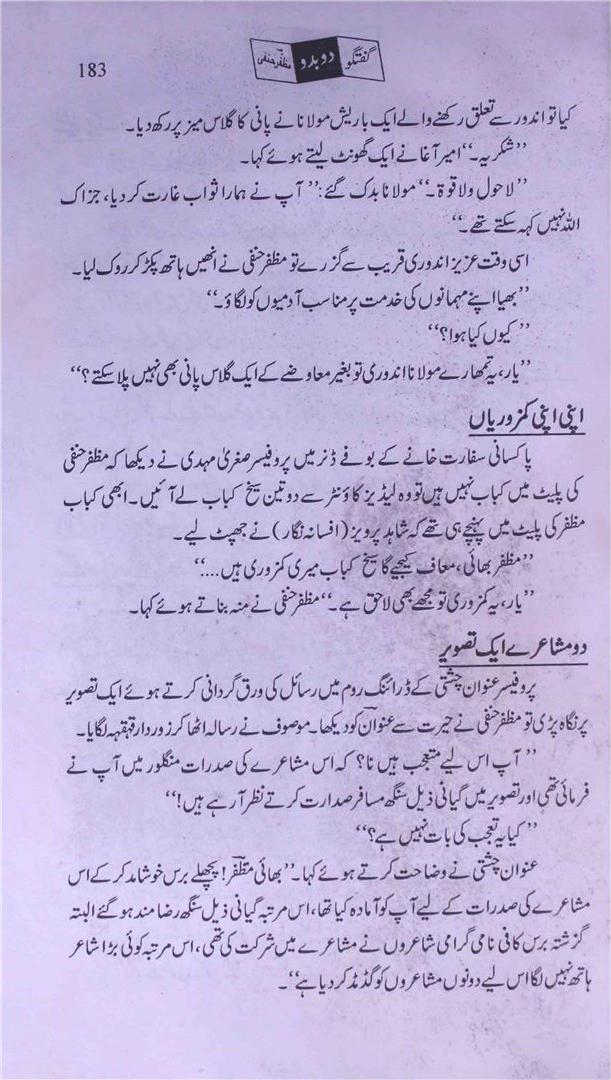 183
گفتگو دوبدو مظفر حنفی
کیا تو اندور سے تعلق رکھنے والے ایک باریش مولانا نے پانی کا گلاس میز پر رکھ دیا۔
’’شکریہ۔‘‘ امیر آغا نے ایک گھونٹ لیتے ہوئے کہا۔
’’لاحول ولا قوۃ۔‘‘ مولانا بدک گئے: ’’آپ نے ہمارا ثواب غارت کر دیا، جزاک
اللہ نہیں کہہ سکتے تھے۔‘‘
اسی وقت عزیز اندوری قریب سے گزرے تو مظفر حنفی نے انھیں ہاتھ پکڑ کر روک لیا۔
’’بھیا اپنے مہمانوں کی خدمت پر مناسب آدمیوں کو لگاؤ۔‘‘
’’کیوں کیا ہوا؟‘‘
’’یار، یہ تمھارے مولانا اندوری تو بغیر معاوضے کے ایک گلاس پانی بھی نہیں پلا سکتے؟‘‘
اپنی اپنی کمزوریاں
پاکستانی سفارت خانے کے بوفے ڈنر میں پروفیسر صغریٰ مہدی نے دیکھا کہ مظفر حنفی
کی پلیٹ میں کباب نہیں ہیں تو وہ لیڈیز کاؤنٹر سے دو تین سیخ کباب لے آئیں۔ ابھی کباب
مظفر کی پلیٹ میں پہنچے ہی تھے کہ شاہد پرویز (افسانہ نگار) نے جھپٹ لیے۔
’’مظفر بھائی، معاف کیجیے گا سیخ کباب میری کمزوری ہیں....‘‘
’’یار، یہ کمزوری تو مجھے بھی لاحق ہے۔‘‘ مظفر حنفی نے منہ بناتے ہوئے کہا۔
دو مشاعرے ایک تصویر
پروفیسر عنوان چشتی کے ڈرائنگ روم میں رسائل کی ورق گردانی کرتے ہوئے ایک تصویر
پر نگاہ پڑی تو مظفر حنفی نے حیرت سے عنوانؔ کو دیکھا۔ موصوف نے رسالہ اٹھا کر زوردار قہقہہ لگایا۔
’’آپ اس لیے متعجب ہیں نا؟ کہ اس مشاعرے کی صدرات منگلور میں آپ نے
فرمائی تھی اور تصویر میں گیانی ذیل سنگھ مسافر صدارت کرتے نظر آرہے ہیں!‘‘
’’کیا یہ تعجب کی بات نہیں ہے؟‘‘
عنوان چشتی نے وضاحت کرتے ہوئے کہا۔ ’’بھائی مظفرؔ! پچھلے برس خوشامد کر کے اس
مشاعرے کی صدرات کے لیے آپ کو آمادہ کیا تھا، اس مرتبہ گیانی ذیل سنگھ رضامند ہوگئے البتہ
گزشتہ برس کافی نامی گرامی شاعروں نے مشاعرے میں شرکت کی تھی، اس مرتبہ کوئی بڑا شاعر
ہاتھ نہیں لگا اس لیے دونوں مشاعروں کو گڈمڈ کر دیا ہے‘‘۔